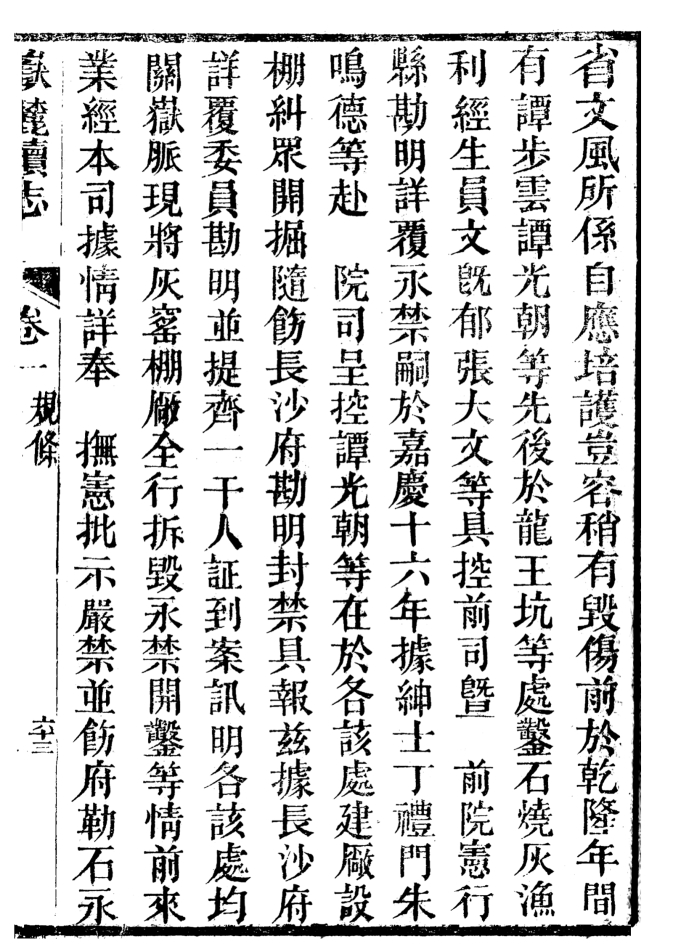 省文風所係自應培護豈容稍有毀傷前於乾隆年間
有譚步雲譚光朝等先後於龍王坑等處鑿石燒灰漁
利經生員文旣郁張大文等具控前司曁　前院憲行
縣勘明詳覆永禁嗣於嘉慶十六年據紳士丁禮門朱
鳴德等赴　院司呈控譚光朝等在於各該處建厰設
棚糾眾開掘隨飭長沙府勘明封禁具報茲據長沙府
詳覆委員勘明並提齊一干人証到案訊明各該處均
關嶽脈現將灰窰棚厰全行拆毀永禁開鑿等情前來
業經本司據情詳奉　撫憲批示嚴禁並飭府勒石永
嶽麓續志　卷一　規條　六十三